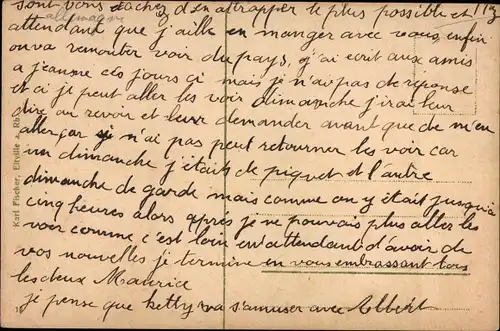 sont bons tachez d'en attrapper le plus possible et 115
allemagne
attendant que j'aille en manger avec vous enfin
on va remonter voir du pays, j'ai ecrit aux amis
a jeanne ces jours ci mais je n'ai pas de réponse
et ci je peut aller les voir dimanche j'irai leur
dire au revoir et leur demander avant que de m'en
aller car je n'ai pas peut retourner les voir car
un dimanche j'étais de piquet et l'autre
dimanche de garde mais comme on y était jusqu'a
cinq heures alors après je ne pouvais plus aller les
voir comme c'est loin en attendant d'avoir de
vos nouvelles je termine en vous embrassant tous
les deux Maurice
je pense que ketty va s'amuser avec Albert
Karl Fischer, Eltville a. Rh.